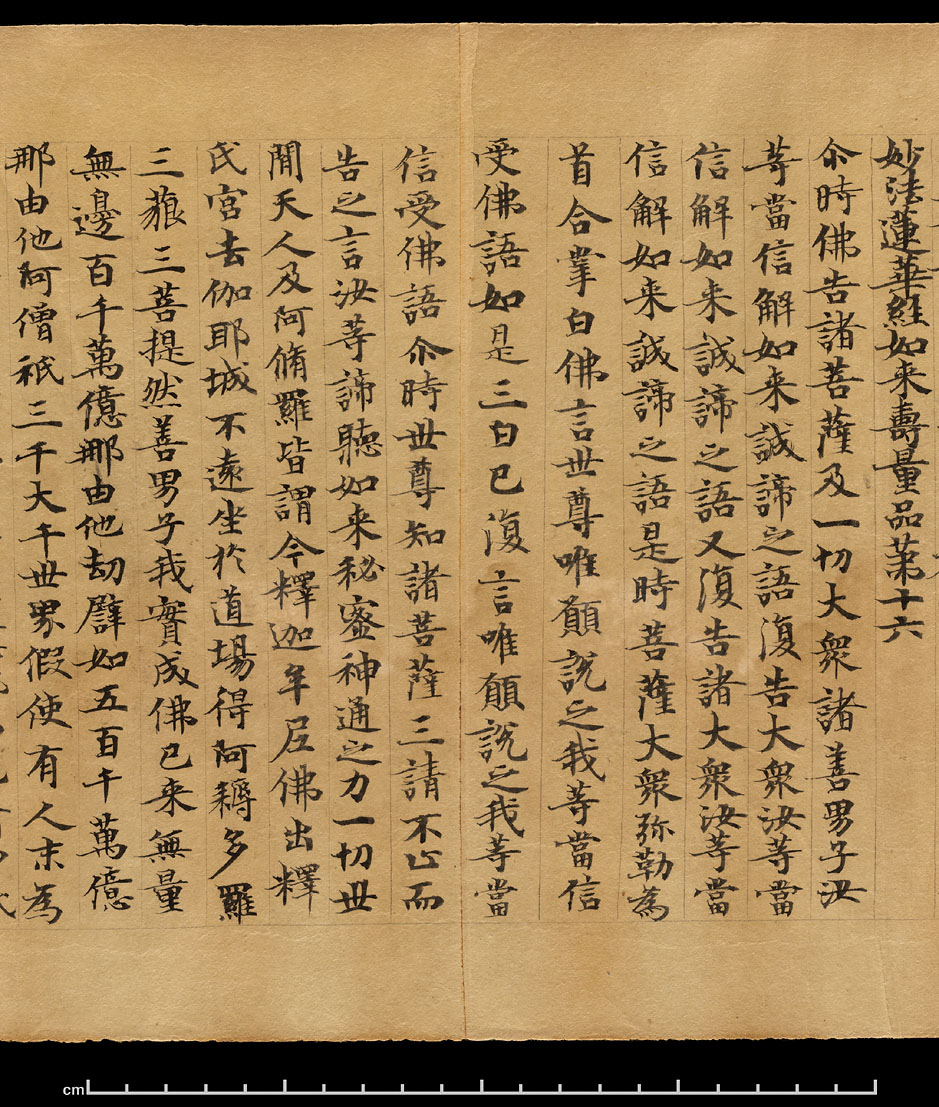 妙法蓮華經如来壽量品苐十六
尒時佛告諸菩薩及一切大衆諸善男子汝
等當信解如来誠諦之語復告大衆汝等當
信解如来誠諦之語又復告諸大衆汝等當
信解如来誠諦之語是時菩薩大衆弥勒為
首合掌白佛言世尊唯願說之我等當信
受佛語如是三白已復言唯願說之我等當
信受佛語尒時世尊知諸菩薩三請不止而
告之言汝等諦聽如来秘密神通之力一切世
閒天人及阿脩羅皆謂今釋迦牟尼佛出釋
氏宮去伽耶城不遠坐於道場得阿耨多羅
三藐三菩提然善男子我實成佛已来無量
無邊百千萬億那由他劫譬如五百千萬億
那由他阿僧祇三千大千世界假使有人末為